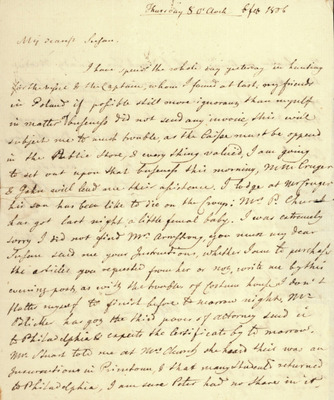 Thursday 8 O'Clock 1806
My dearest Susan.
I have spent the whole day yesterday in hunting
for the Vessel & the Captain, whom I found at last, my friends
in Poland if possible still more ignorant than myself
in matter business did not send any invoice, this will
subject me to much trouble, as the Caisse must be opened
in the Public Store, & every thing valued, I am going
to set out upon that business this morning, Mr Cruger
& John will lend me their assistance. I lodge at Mr Cruger
his son has been like to die on the Croup; Mrs P. Church
has got last night a little female baby. I was extremely
sorry I did not find Mrs Armstrong, You must my dear
Susan send me your Instructions, whether I am to purchase
the articles you requested from her or not, write me by this
evening post, as with the trouble of Costum house I don't
flatter myself to finish before to morrow night, Mr
has got the third power of attorney send it
to Philadelphia & expects the Certificate by to morrow.
Mrs Stuart told me at Mrs Church she heard their was an
Insurrection in Princetown & that many Students returned
to Philadelphia, I am sure Peter had no Share in it